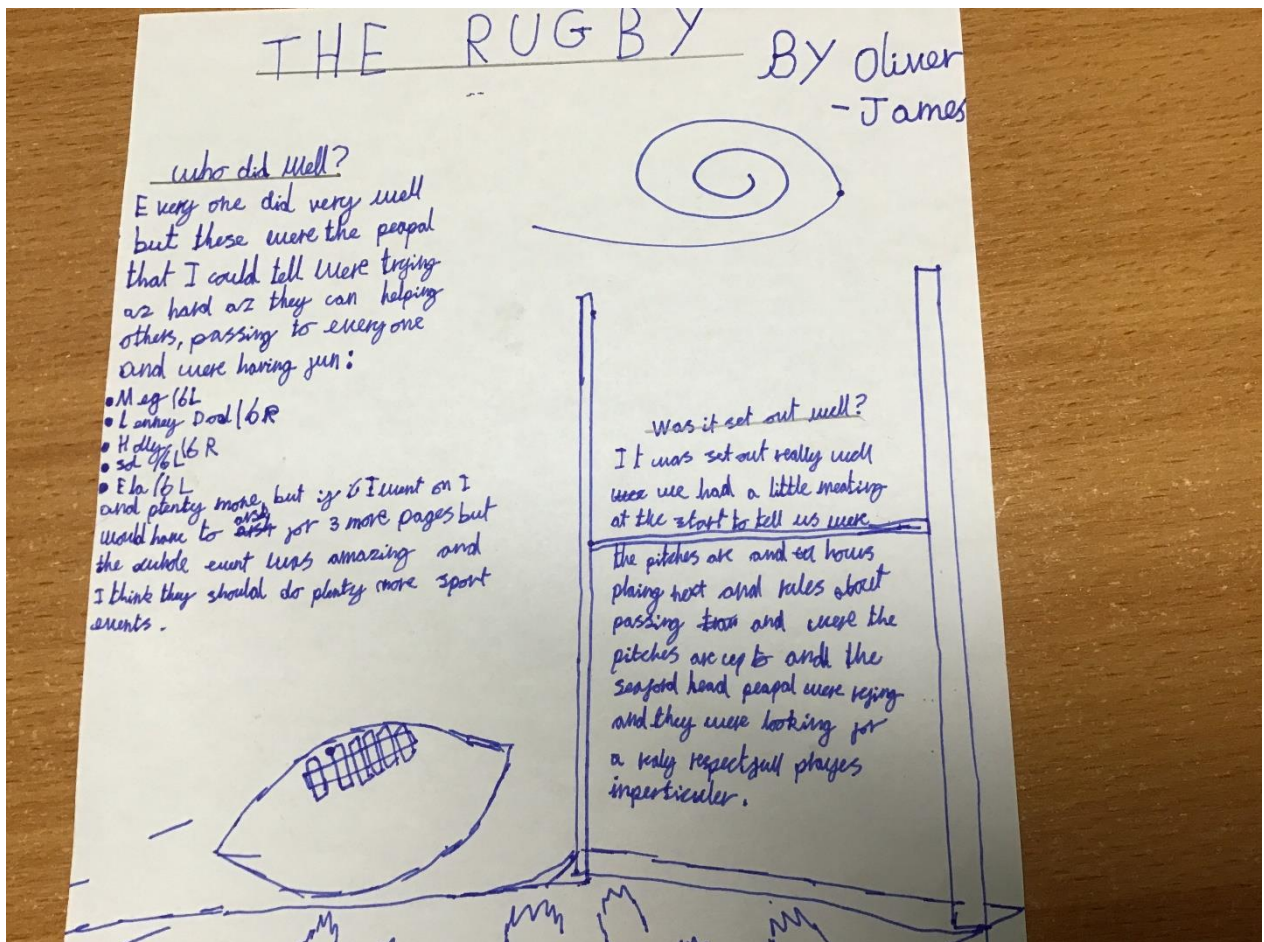 THE RUGBY
BY Oliver
-James
who did well?
Every one did very well
but these were the peapal
that I could tell were trying
az hard az they can helping
others, passing to everyone
and were having fun:
• Meg/6L
• Lenney Dod/6R
• Holly/6R
• Sol/6L
• Ela/6L
and plenty more, but if I went on I
would have to for 3 more pages but
the whole event was amazing and
I think they should do plenty more sport
events.
Was it set out well?
It was set out really well
we had a little meating
at the start to tell us were
the pitches are and hours
plaing next and rules about
passing and were the
pitches are up to and the
seaford head peapal were refing
and they were looking for
a realy respectfull playes
inperticuler.